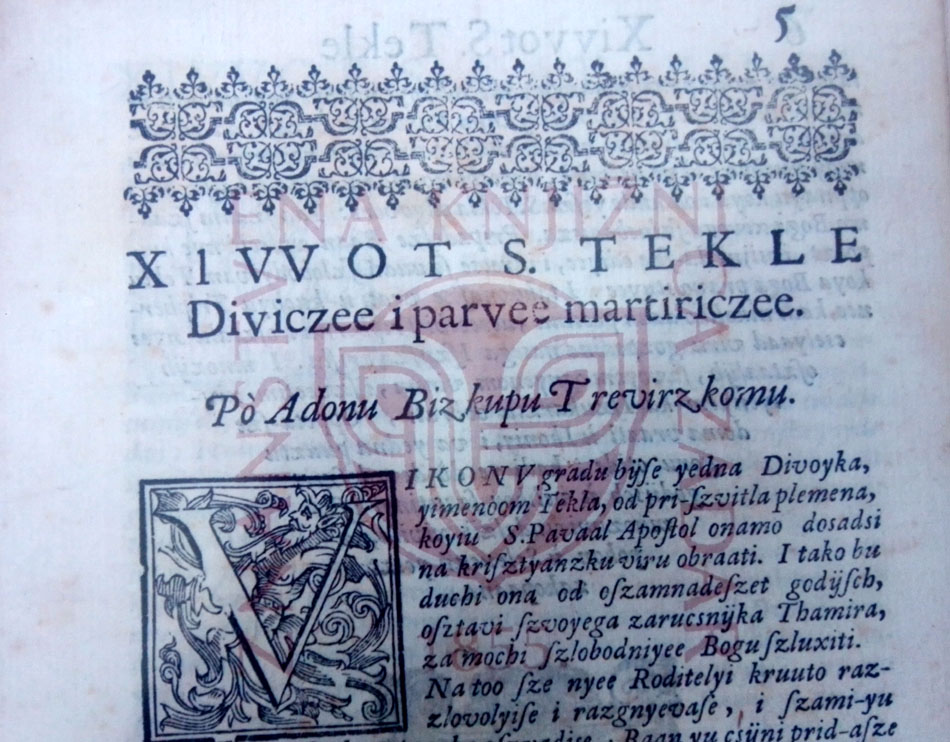 5
X I V V O T S. T E K L E
Diviczee i parvee martiriczee.
Pò Adonu Bizkupu Trevirzkomu.
V IKONV gradu bijſe yedna Divoyka,
yimenoom Tekla, od pri-ſzvitla plemena,
koyiu S. Pavaal Apoſtol onamo dosadsi
na kriſztyanzku viru obraati. I tako bu
duchi ona od oſzamnadeſzet godijſch,
oſztavi ſzvoyega zarucsnijka Thamira,
za mochi ſzlobodniyee Bogu ſzluxiti.
Na too ſze nyee Roditelyi kruuto raz-
zlovolyiſe i razgnyevaſe, i ſzami-yu
Raan yu csijni prid-aſze